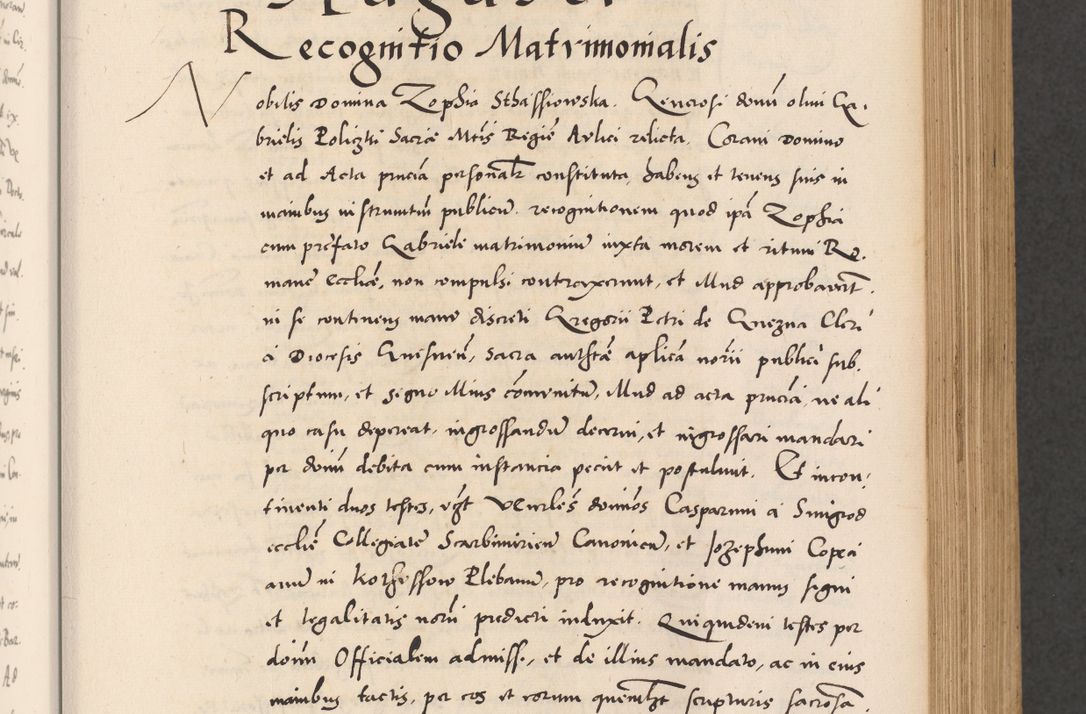 Recognitio Matrimonialis
Nobilis Domina Zophia Sthassiowska. Generosi domi olim Ga
brielis Policzki Sacrae Mtis Regie Aulici relicta. Coram Domino
et ad Acta pncia personalr constituta, habens et tenens suis in
manibus instrumtm publicum. recognitionem quod ipa Zophia
cum prefato Gabriele matrimonium iuxta morem et ritum Ro.
mane Ecclie, non compulsi contraxerunt, et illud approbavert.
in se continens manu discreti Gregorii Petri de Gnezna Cleri
ci Diocesis Gnesnen, sacra authte aplica norii publici sub.
scriptum, et signo illius comunitu, illud ad acta pncia, ne ali
quo casu depereat, ingrossandu decerni, et ingrossari mandari
per domu debita cum instancia peciit et postulavit. Et incon,
tinenti duos testes, vgt Venrles dominos Casparum a Smigrod
ecclie Collegiate Scarbimirien Canonicu, et Jozephum Copci
anu in Kothessow Plebanu, pro recognitione manus signi
et legalitatis norii predicti induxit. Quiquidem testes per
domu Officialem admissi, et de illius mandato, ac in eius
manibus tactis, per eos et eorum quemlzt scripturis sacrosa.